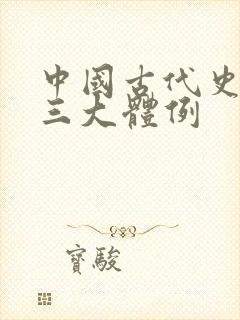 中國古代史
三大體例
寶駿